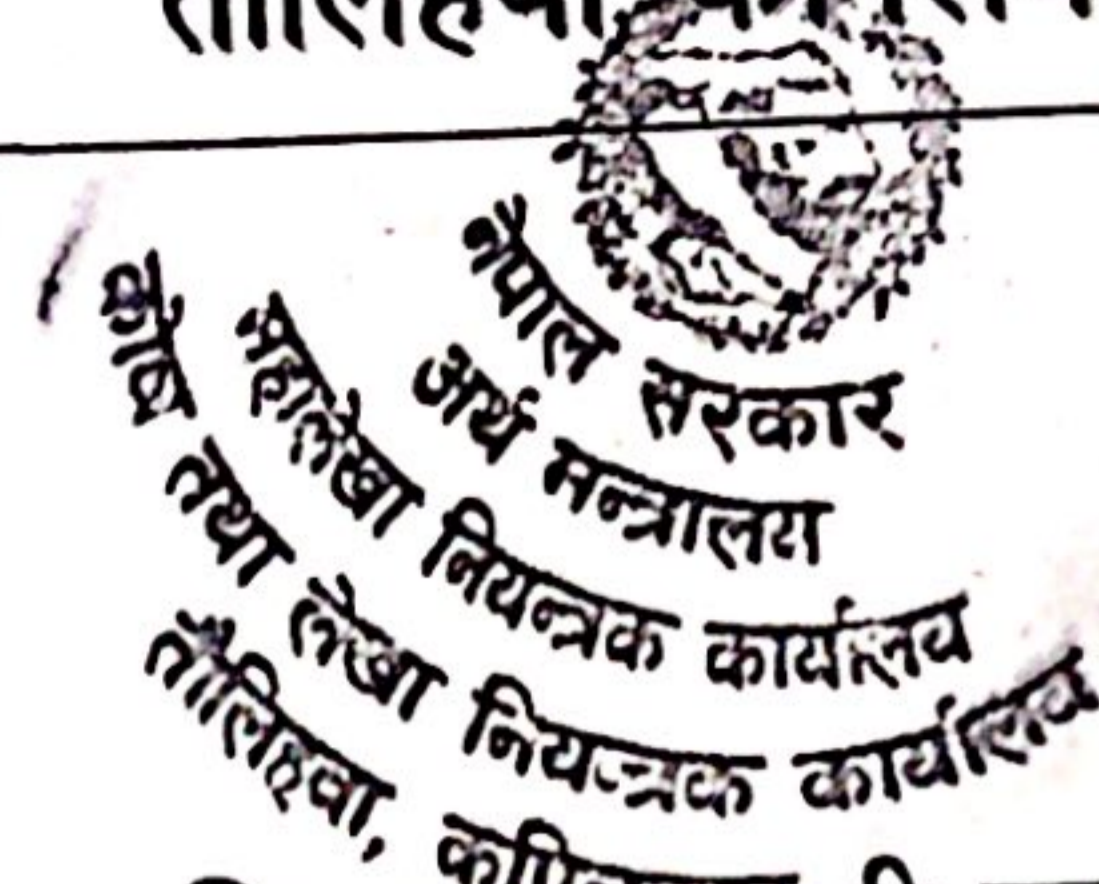 नेपाल सरकार
अर्थ मन्त्रालय
महालेखा नियन्त्रक कार्यालय
कोष तथा लेखा नियन्त्रक कार्यालय
तौलिहवा,